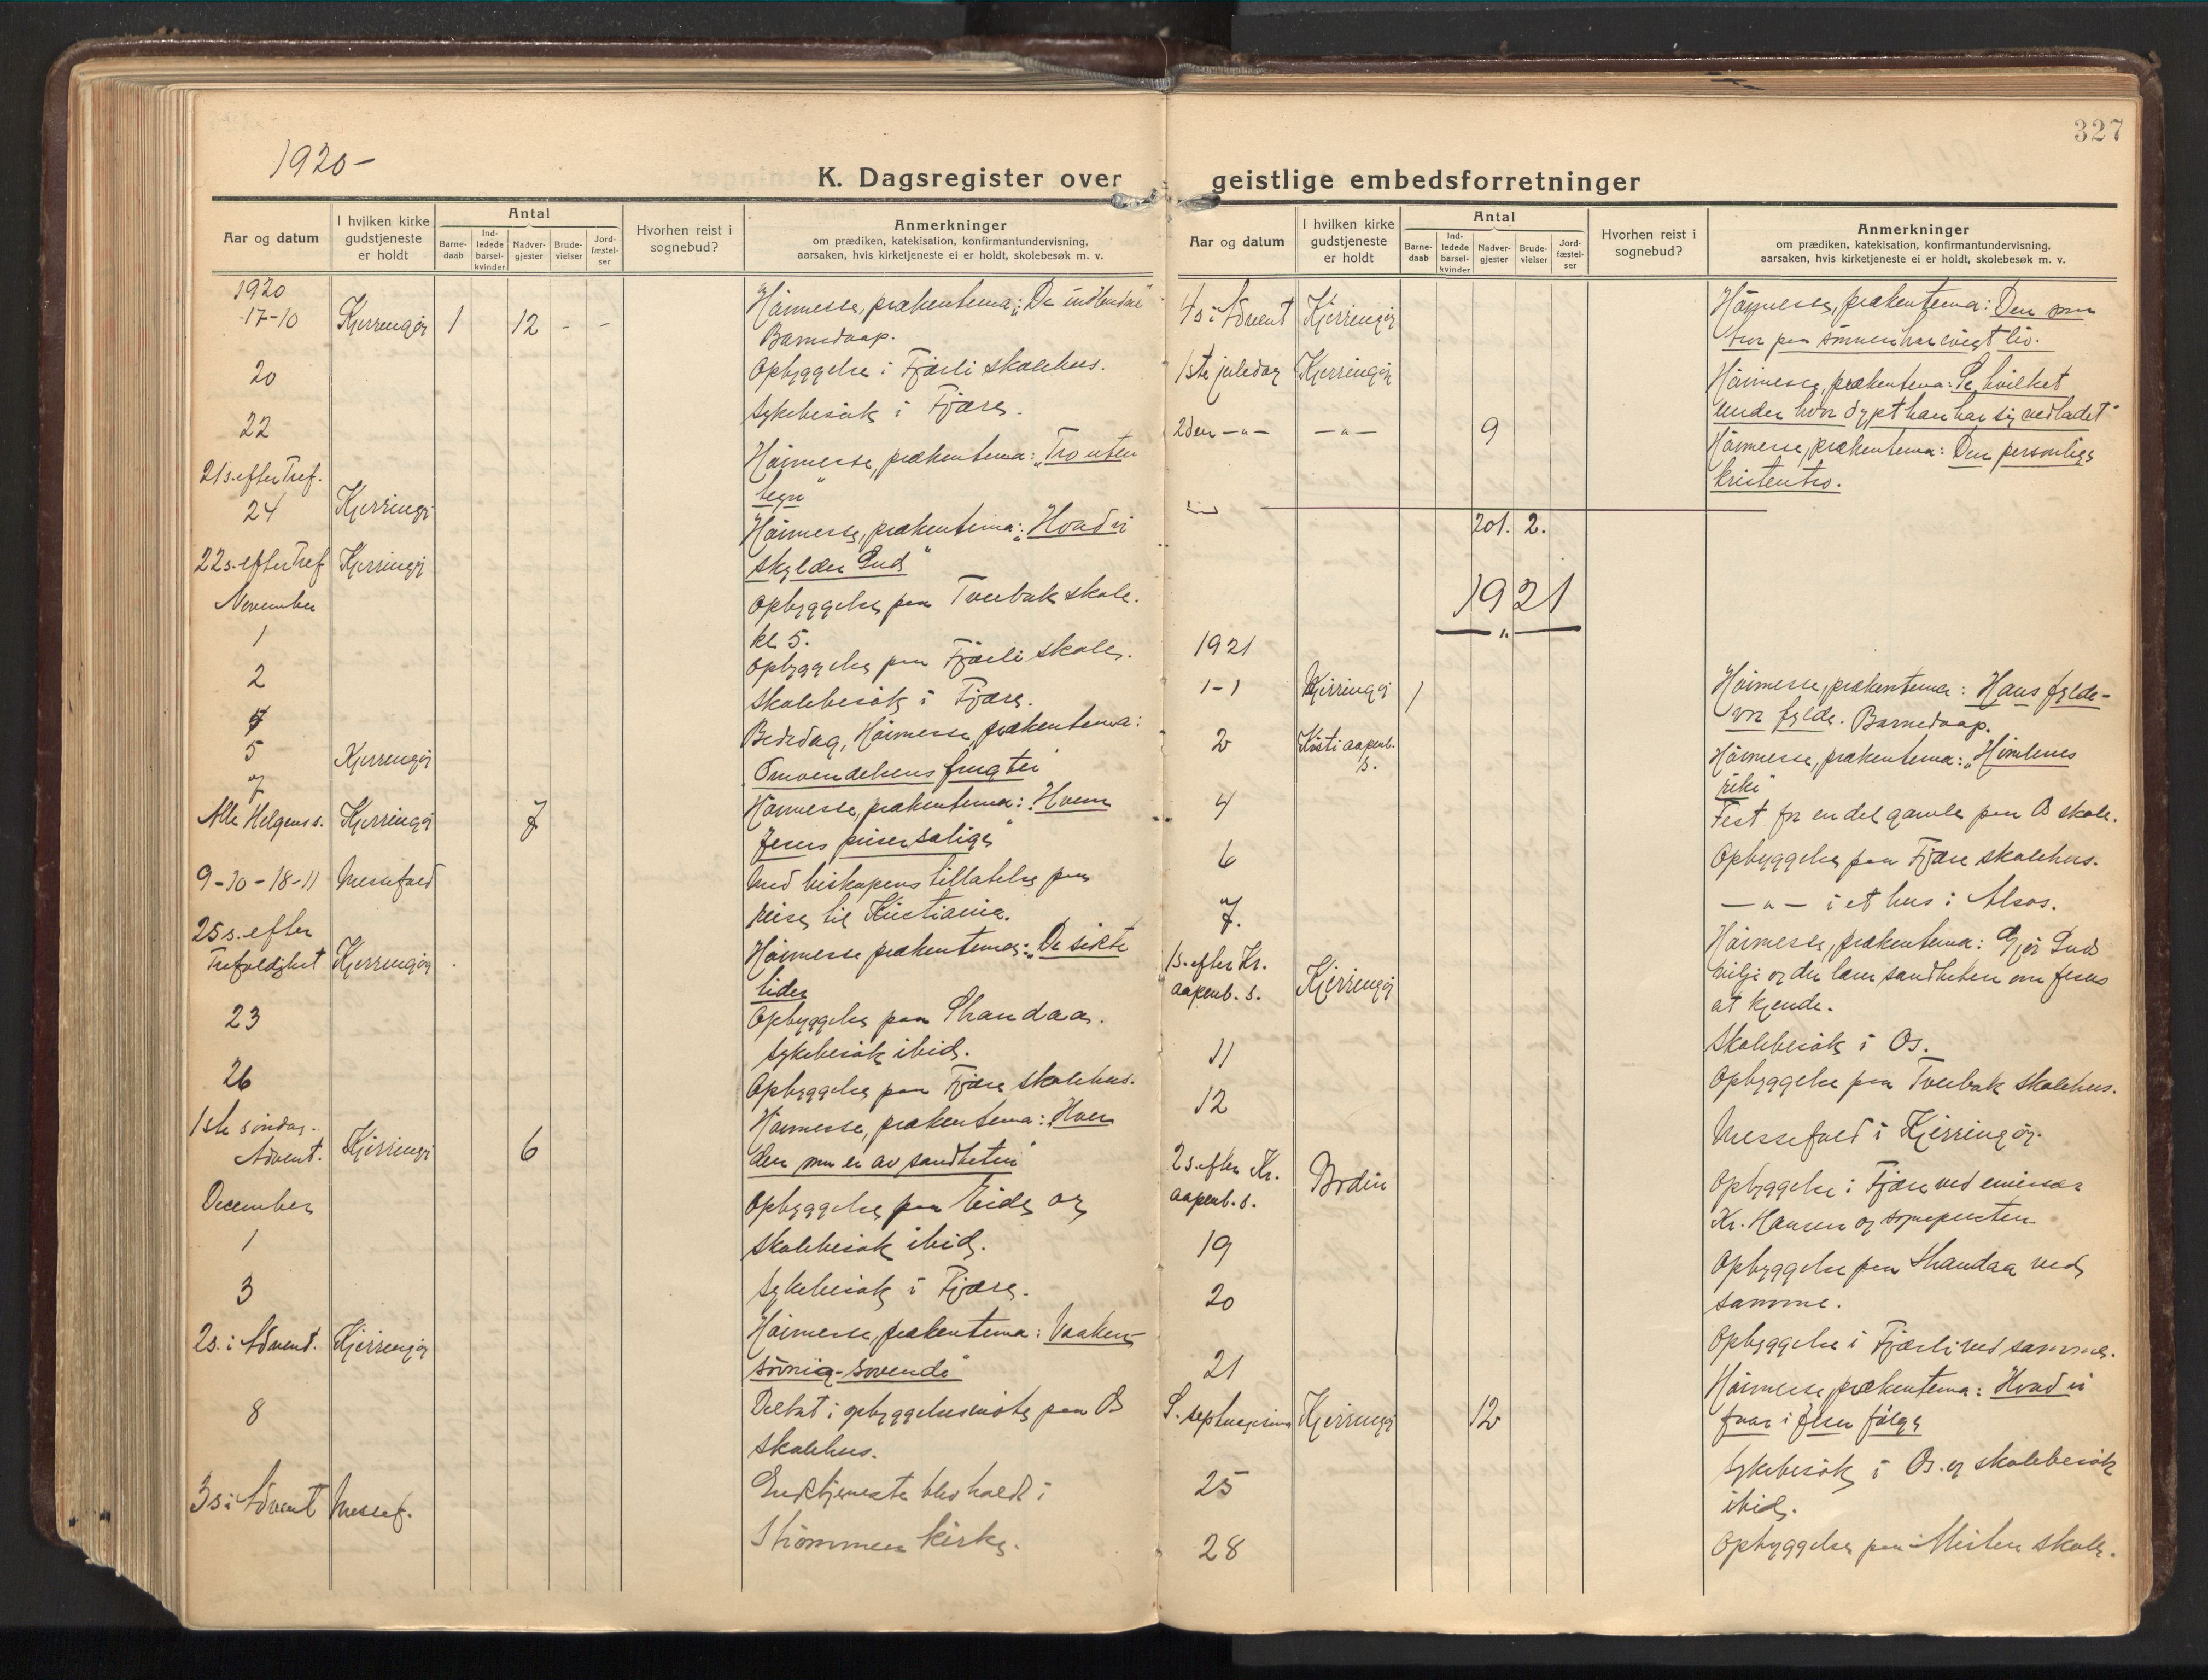 327
1920-
K. Dagsregister over geistlige embedsforretninger
Aar og datum
I hvilken kirke
gudstjeneste
er holdt
Antal
Barne-
daab
Ind-
ledede
barsel-
kvinder
Nadver-
gjester
Brude-
vielser
Jord-
fæstel-
ser
Hvorhen reist i
sognebud?
Anmerkninger
om prædiken, katekisation, konfirmantundervisning,
aarsaken, hvis kirketjeneste ei er holdt, skolebesøk m. v.
1920
17-10 Kjerringøy 1 12 - - Høimesse, prækentema: „De indbudne"
Barnedaap.
20 Opbyggelse i Fjærli skolehus.
22 Sykebesøk i Fjære.
21 s. efter Tref.
24 Kjerringø Høimesse, prækentema: „Tro uten
tegn"
22 s. efter Tref Kjerringøy Høimesse, prækentema: „Hvad vi
skylder Gud"
November
1 Opbyggelse paa Tverbak skole.
kl 5.
2 Opbyggelse paa Fjærli skole.
4 Skolebesøk i Fjære.
5 Kjerringøy Bededag, Høimesse prækentema:
Omvendelsens frugter
7
Alle Helgens s. Kjerringøy 7 Høimesse, prækentema: „Hvem
Jesus priser salige"
9-10-18-11 Messefald Med biskopens tillatelse paa
reise til Kristiania.
25 s. efter
Trefoldighet Kjerringøy Høimesse prækentema: „De sidste
tider
23 Opbyggelse paa Strandaa.
Sykebesøk ibid.
26 Opbyggelse paa Fjære skolehus.
1ste søndag
Advent. Kjerringø 6 Høimesse, prækentema: Hver
den som er av sandheten"
December
1 Opbyggelse paa Eide og
skolebesøk ibid.
3 Sykebesøk i Fjære.
2 s. i Advent. Kjerringøy Høimesse, prækentema: Vaaken-
søvnig-sovende"
8 Deltat i opbyggelsesmøte paa Os
skolehus.
3 s i Advent Messef. Gudstjeneste blev holdt i
Strømmen kirke.
Aar og datum
I hvilken kirke
gudstjeneste
er holdt
Antal
Barne-
daab
Ind-
ledede
barsel-
kvinder
Nadver-
gjester
Brude-
vielser
Jord-
fæstel-
ser
Hvorhen reist i
sognebud?
Anmerkninger
om prædiken, katekisation, konfirmantundervisning,
aarsaken, hvis kirketjeneste ei er holdt, skolebesøk m. v.
4 s i Advent Kjerringøy Høimesse, prækentema: Den som
tror paa sønnen har evigt liv.
1ste juledag Kjerringøy Høimesse, prækentema: Se hvilket
under hvor dypt han har sig nedladet"
2den -„- -„- 9 Høimesse, prækentema: Den personlige
kristentro.
201. 2.
1921
1921
1-1 Kjerringøy 1 Høimesse, prækentema: Hans fylde-
vor fylde. Barnedaap.
2 Kristi aapenb.
s. Høimesse, prækentema: „Himlenes
rike
4 Fest for en del gamle paa Os skole.
6 Opbyggelse paa Fjære skolehus.
7. -„- i et hus i Alsos.
1 s. efter Kr.
aapenb. s. Kjerringøy Høimesse, prækentema: Gjør Guds
vilje og du lærer sandheten om Jesus
at kjende.
11 Skolebesøk i Os.
12 Opbyggelse paa Tverbak skolehus.
2 s. efter Kr.
aapenb. s. Bodin Messefald i Kjerringøy.
19 Opbyggelse i Fjære ved emissær
Kr. Hansen og sognepresten
20 Opbyggelse paa Strandaa ved
samme.
21 Opbyggelse i Fjærli ved samme.
S. septuagesima Kjerringøy 12 Høimesse, prækentema: Hvad vi
faar i Jesu følge
25 Sykebesøk i Os. og skolebesøk
ibid.
28 Opbyggelse paa Misten skole.